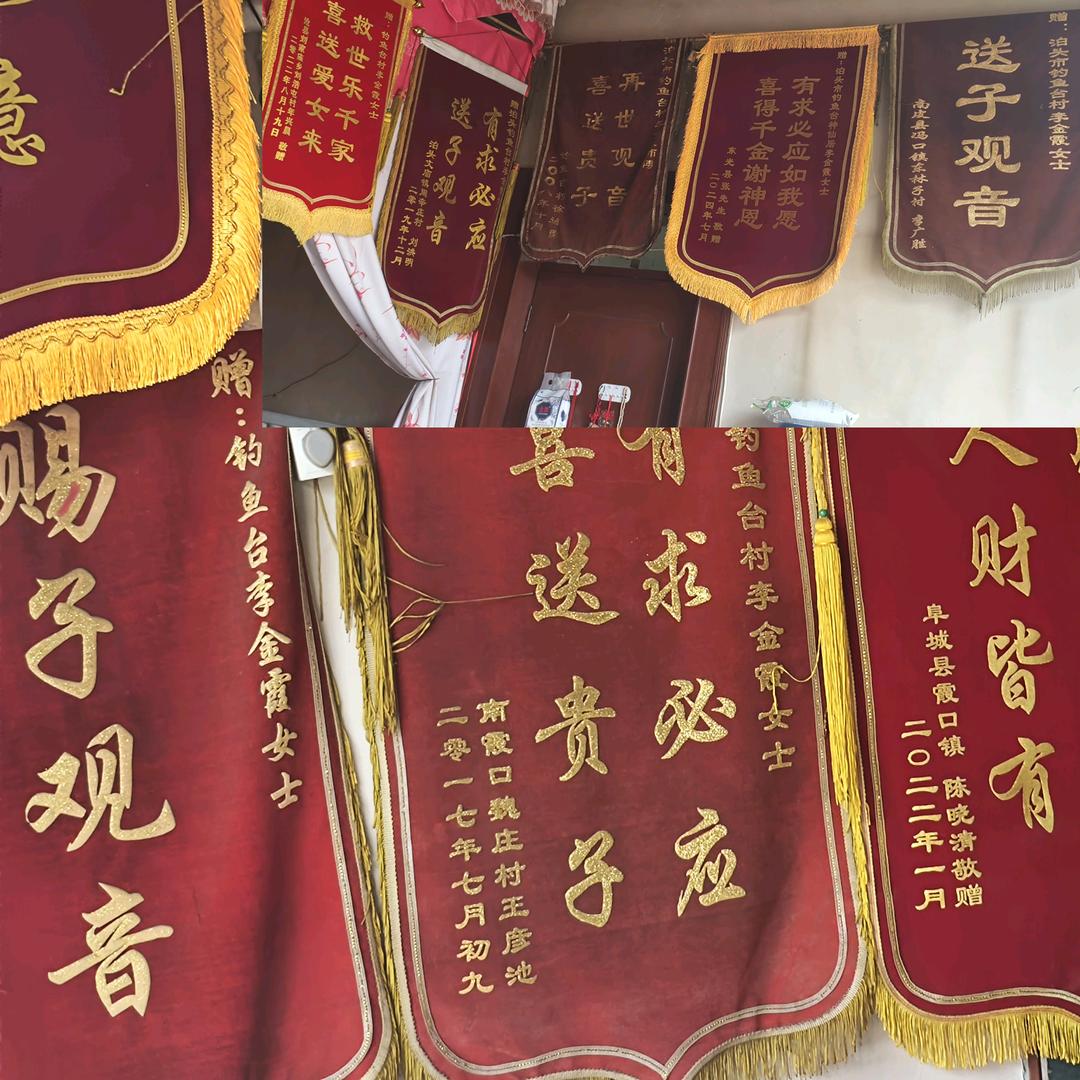 意
赠：钓鱼台村李金霞女士
救世乐千家
喜送爱女来
二零二二年八月十九日 敬赠
有求必应
送子观音
刘洪明
二零一九年十二月
再世观音
喜送贵子
赠：泊头市钓鱼台神仙居李金霞女士
有求必应如我愿
喜得千金谢神恩
东光县张先生 敬赠
二〇二四年七月
赠：泊头市钓鱼台村李金霞女士
送子观音
李广胜
赠：钓鱼台李金霞女士
赐子观音
钓鱼台村李金霞女士
有求必应
喜送贵子
南霞口魏庄村王彦池
二零一七年七月初九
人财皆有
阜城县霞口镇 陈晓清敬赠
二〇二二年一月